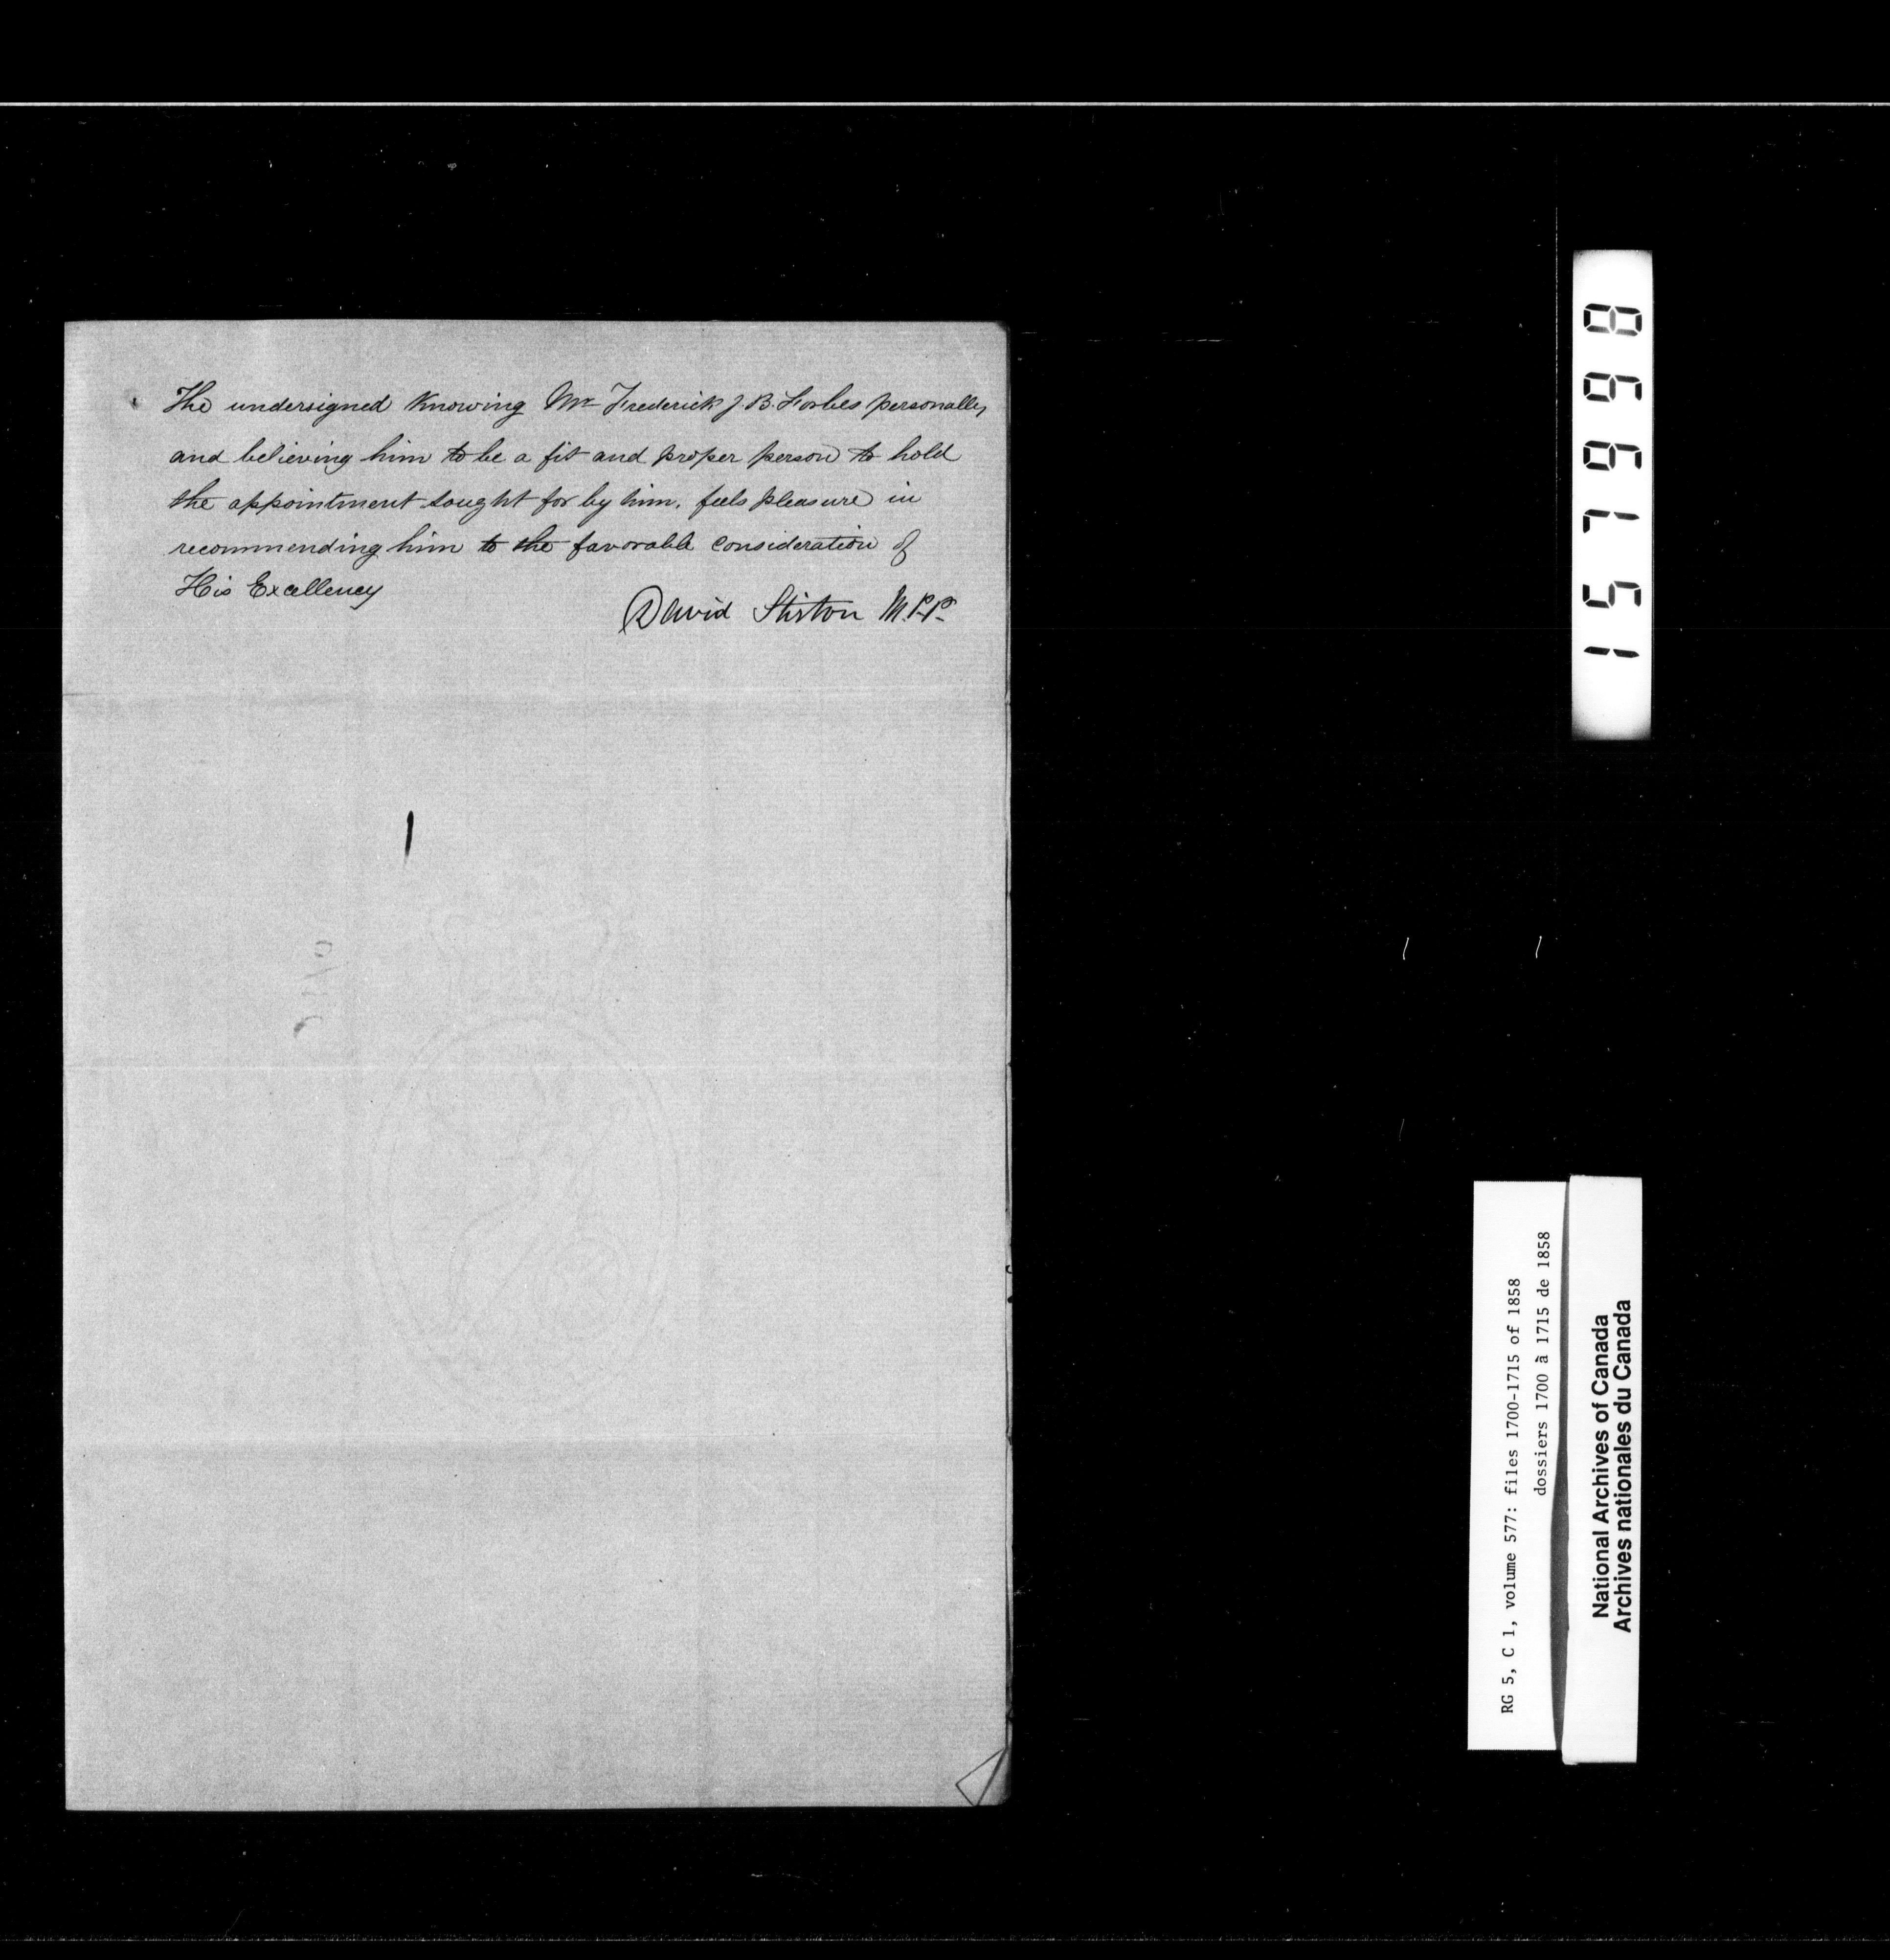 The undersigned Knowing Mr Frederick J. B. Forbes personally,
and believing him to be a fit and proper person to hold
the appointment sought for by him, feels pleasure in
recommending him to the favorable consideration of
His Excellency
David Stirton M.P.P.
157998
RG 5, C 1, volume 577: files 1700-1715 of 1858
dossiers 1700 à 1715 de 1858
National Archives of Canada
Archives nationales du Canada